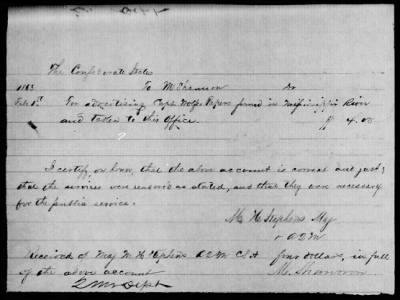 The Confederate States
1863 To M Shannon Dr
Feb 1st For advertising Capt Wolfe Papers found in Mississippi River
and taken to this Office. $ 4.00
I certify on honor, that the above account is correct and just;
that the services were rendered as stated, and that they were necessary
for the public service.
M. H. Hopkins Maj
& A Q M
Received of Maj M H Hopkins A Q M C S A four dollars, in full
of the above account
M. Shannon
Q Mrs Dept